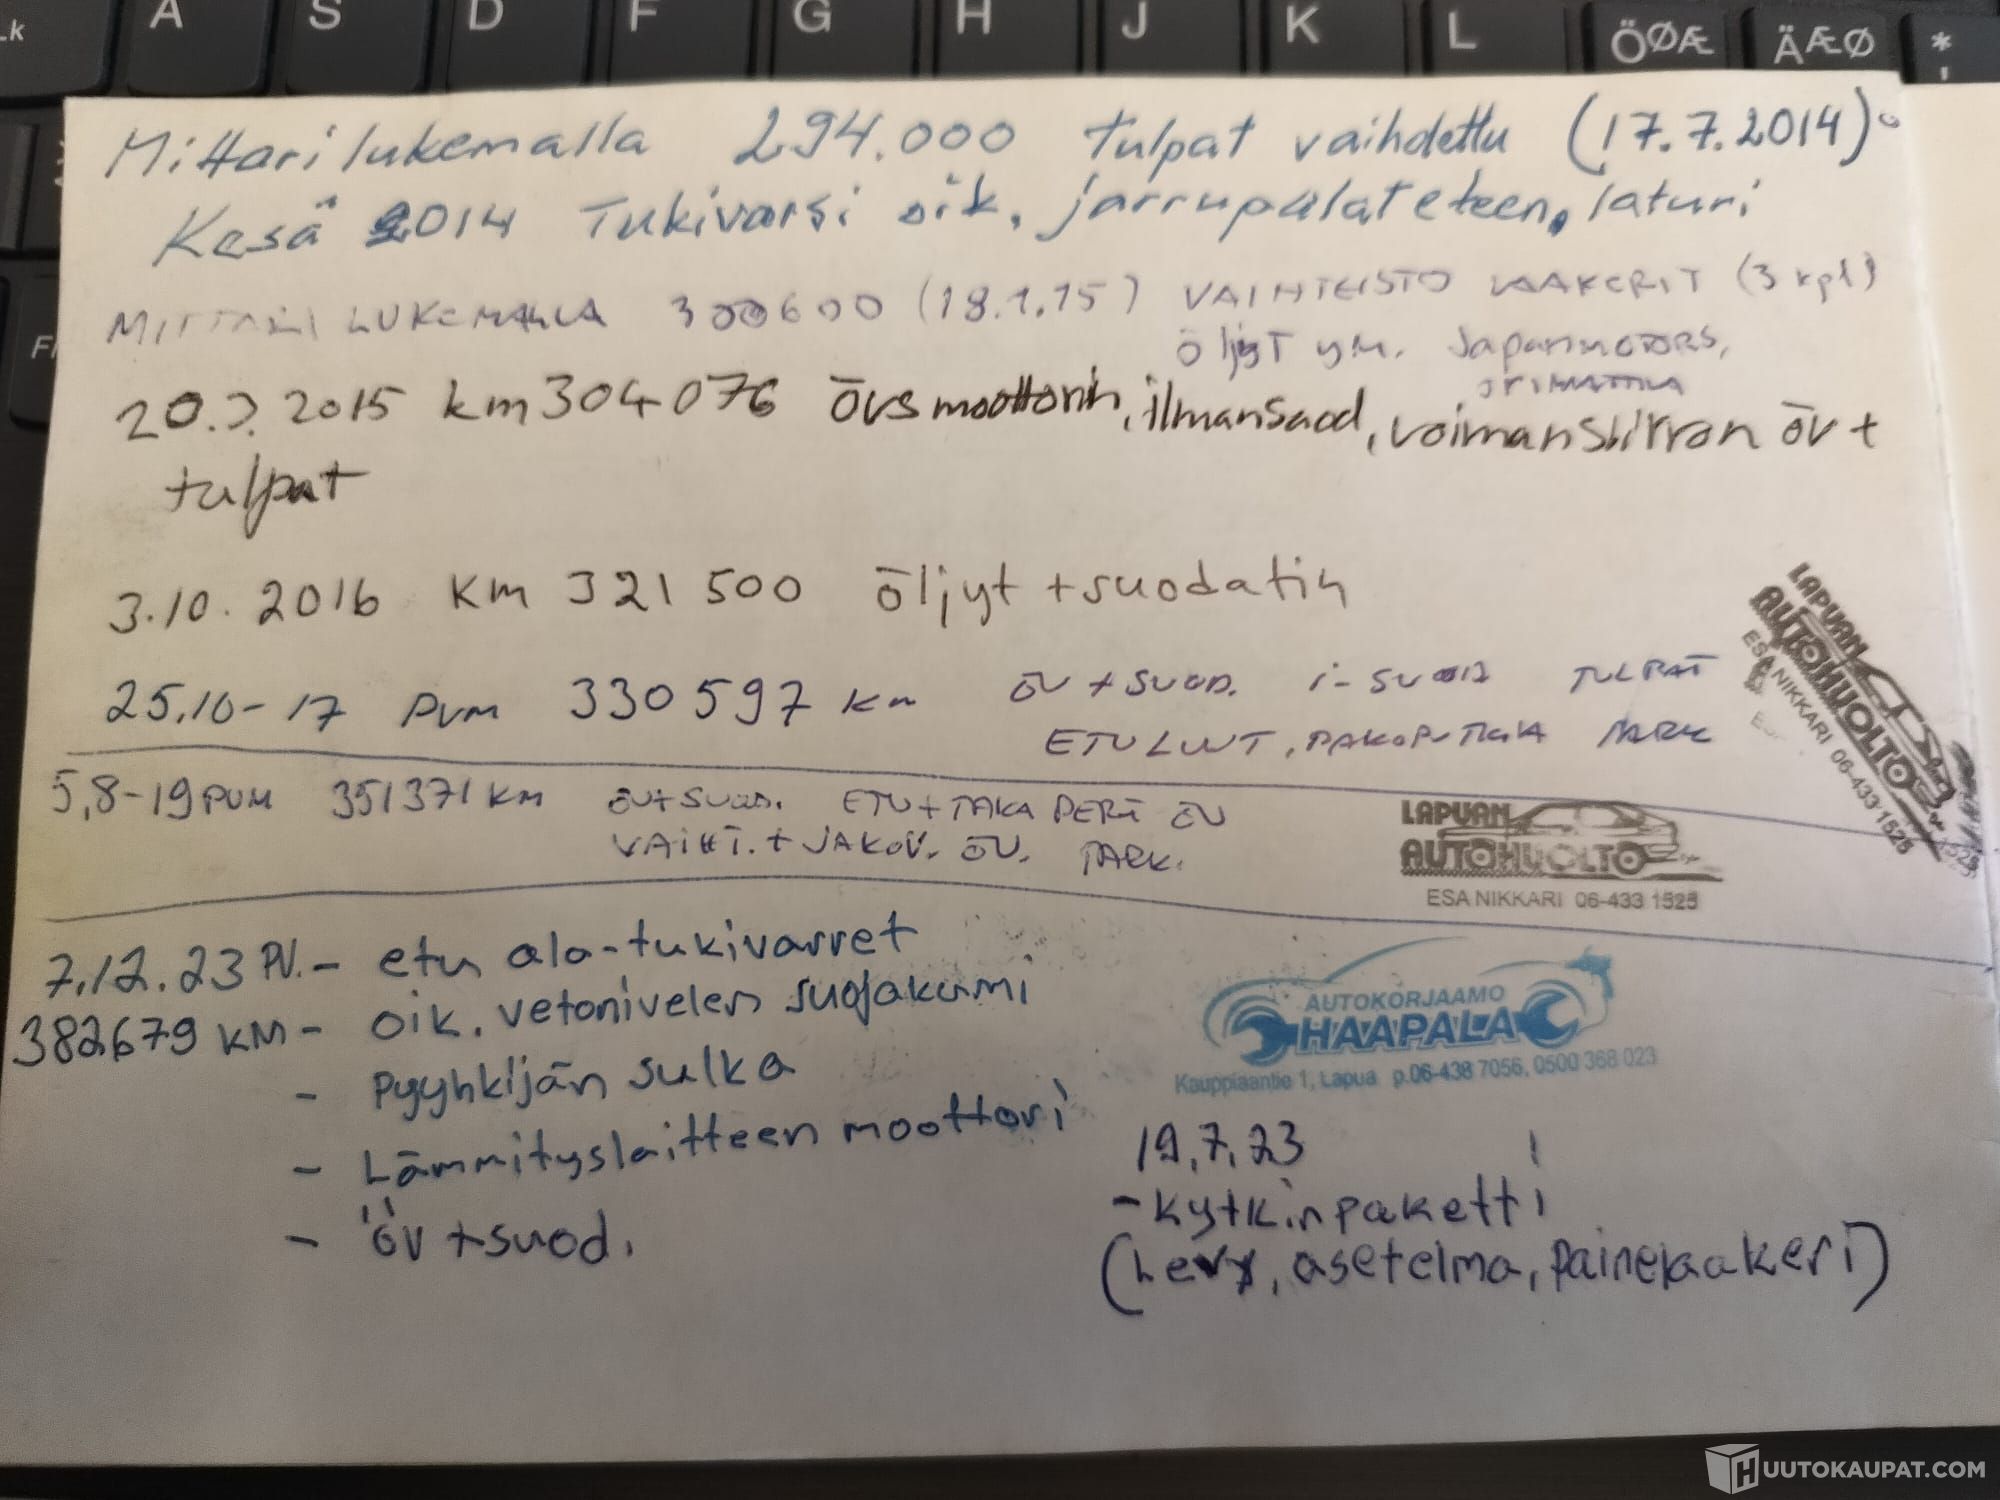 A S D F G H J K L ÖØÆ ÄÆØ *
Mittarilukemalla 294.000 tulpat vaihdettu (17.7.2014)
Kesä 2014 Tukivarsi oik, jarrupalat eteen, laturi
MITTARI LUKEMALLA 300600 (18.1.15) VAIHTEISTO LAAKERIT (3 kpl)
öljyt ym. Japanmotors,
ORIMATTILA
2015 km 304076 övs moottorin, ilmansuod, voimansiirron öv +
tulpat
3.10.2016 KM 321 500 öljyt + suodatin
25.10-17 PVM 330597 km ÖV + SUOD. i-SUOD TULPAT
ETULUUT, PAKOPUTKIA TARK
5,8-19 PVM 351371 KM ÖV+SUOD. ETU + TAKA PERÄ ÖV
VAIHT. + JAKOV. ÖV. TARK.
LAPUAN
AUTOHUOLTO
ESA NIKKARI 06-433 1525
LAPUAN
AUTOHUOLTO
ESA NIKKARI 06-433 1525
7.12.23 PV. - etu ala-tukivarret
382679 KM - oik. vetonivelen suojakumi
- Pyyhkijän sulka
- Lämmityslaitteen moottori
- öv + suod.
AUTOKORJAAMO
HAAPALA
Kauppiaantie 1, Lapua p.06-438 7056, 0500 368 023
19.7.23
- kytkinpaketti
(Levy, asetelma, painelaakeri)
HUUTOKAUPAT.COM